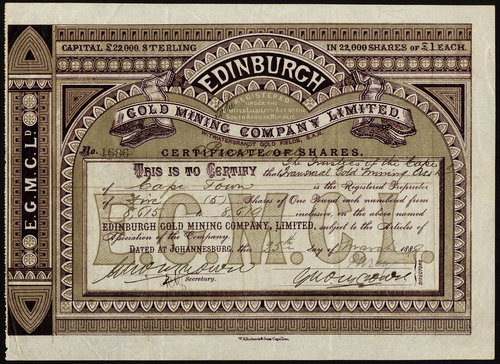 CAPITAL £22,000 STERLING IN 22,000 SHARES OF £1 EACH.
EDINBURGH
REGISTERED
UNDER THE
LIMITED LIABILITY ACT OF THE
SOUTH AFRICAN REPUBLIC
GOLD MINING COMPANY LIMITED.
WITWATERSRANDT GOLD FIELDS, S.A.R.
No. 1686
CERTIFICATE OF SHARES.
THIS IS TO CERTIFY that The Trustees of the Cape
Transvaal Gold Mining
of Cape Town is the Registered Proprietor
of Five (5) Shares of One Pound each numbered from
8,615 8,619 inclusive, in the above named
EDINBURGH GOLD MINING COMPANY, LIMITED. subject to the Articles of
Association of the Company.
DATED AT JOHANNESBURG, this 25th day of March 188
Secretary.
DIRECTORS
E.G.M.C. LD
E.G.M.C.L.